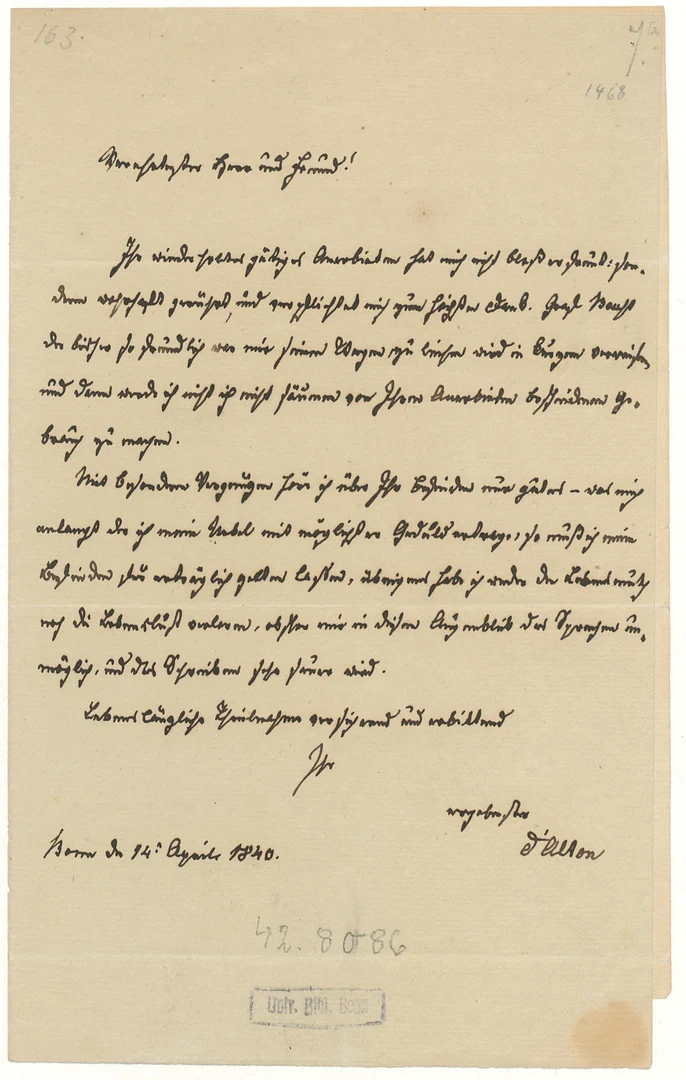 163.
1468
Verehrtester Herr und Freund!
Ihr wiederholtes gütiges Anerbieten hat mich nicht bloß erfreut: son-
dern wahrhaft gerührt, und verpflichtet mich zum höchsten Dank. Graf
der bisher so freundlich war mir seinen Wagen zu leihen wird in Kurzem verreisen,
und dann werde ich nicht ich nicht säumen von Ihrem Anerbieten bescheidenen Ge-
brauch zu machen.
Mit besonderem Vergnügen höre ich über Ihr Befinden nur gutes – was mich
anlangt der ich mein Uebel mit möglichster Geduld ertrage, so muß ich mein
Befinden für erträglich gelten lassen, übrigens habe ich weder den Lebensmuth
noch die Lebenslust verloren, obschon mir in diesem Augenblick das Sprechen un-
möglich, und das Schreiben sehr sauer wird.
Lebenslängliche Theilnahme versichernd und erbittend
Ihr
ergebenster
d'Alton
Bonn den 14t April 1840.
42.8086
Univ. Bibl. Bonn